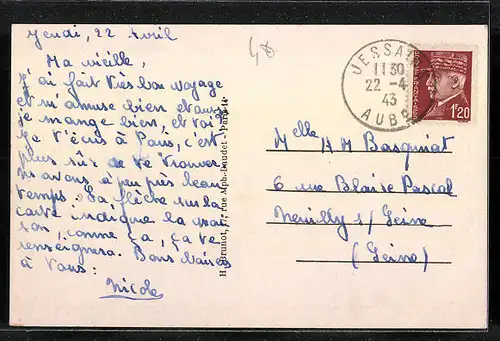 Jeudi, 22 Avril
Ma vieille,
J'ai fait très bon voyage
et m'amuse bien et aussi
je mange bien, et toi?
Je t'écris à Paris, c'est
plus sûr de te trouver
ns avons à peu près beau
temps. La flèche sur la
carte indique la mai
son, comme ça, ça te
renseignera. Bons baisers
à Vous:
Nicole
JESSA
11 30
22 -4
43
AUBE
1F20
Melle M Basquiat
6 rue Blaise Pascal
Neuilly s/ Seine
(Seine)